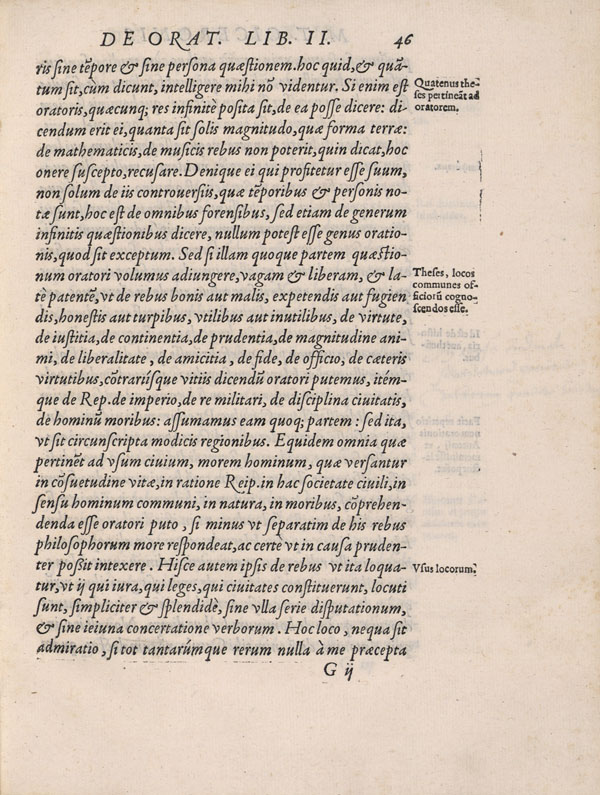 DE ORAT. LIB. II. 46
ris sine tẽpore & sine persona quæstionem. hoc quid, & quã-
tum sit, cùm dicunt, intelligere mihi nõ videntur. Si enim est
oratoris, quæcunq; res infinitè posita sit, de ea posse dicere: di-
cendum erit ei, quanta sit solis magnitudo, quæ forma terræ:
de mathematicis, de musicis rebus non poterit, quin dicat, hoc
onere suscepto, recusare. Denique ei qui profitetur esse suum,
non solum de iis controuersiis, quæ tẽporibus & personis no-
tæ sunt, hoc est de omnibus forensibus, sed etiam de generum
infinitis quæstionibus dicere, nullum potest esse genus oratio-
nis, quod sit exceptum. Sed si illam quoque partem quæstio-
num oratori volumus adiungere, vagam & liberam, & la-
tè patentẽ, vt de rebus bonis aut malis, expetendis aut fugien
dis, honestis aut turpibus, vtilibus aut inutilibus, de virtute,
de iustitia, de continentia, de prudentia, de magnitudine ani-
mi, de liberalitate, de amicitia, de fide, de officio, de cæteris
virtutibus, cõtrariísque vitiis dicendũ oratori putemus, itém-
que de Rep. de imperio, de re militari, de disciplina ciuitatis,
de hominũ moribus: assumamus eam quoq; partem: sed ita,
vt sit circunscripta modicis regionibus. Equidem omnia quæ
pertinẽt ad vsum ciuium, morem hominum, quæ versantur
in cõsuetudine vitæ, in ratione Reip. in hac societate ciuili, in
sensu hominum communi, in natura, in moribus, cõprehen-
denda esse oratori puto, si minus vt separatim de his rebus
philosophorum more respondeat, ac certè vt in causa pruden-
ter possit intexere. Hisce autem ipsis de rebus vt ita loqua-
tur, vt ij qui iura, qui leges, qui ciuitates constituerunt, locuti
sunt, simpliciter & splendidè, sine vlla serie disputationum,
& sine ieiuna concertatione verborum. Hoc loco, nequa sit
admiratio, si tot tantarúmque rerum nulla à me præcepta
G ij
Quatenus the-
ses pertineãt ad
oratorem.
Theses, locos
communes of-
ficiorũ cogno-
scendos esse.
Vsus locorum.